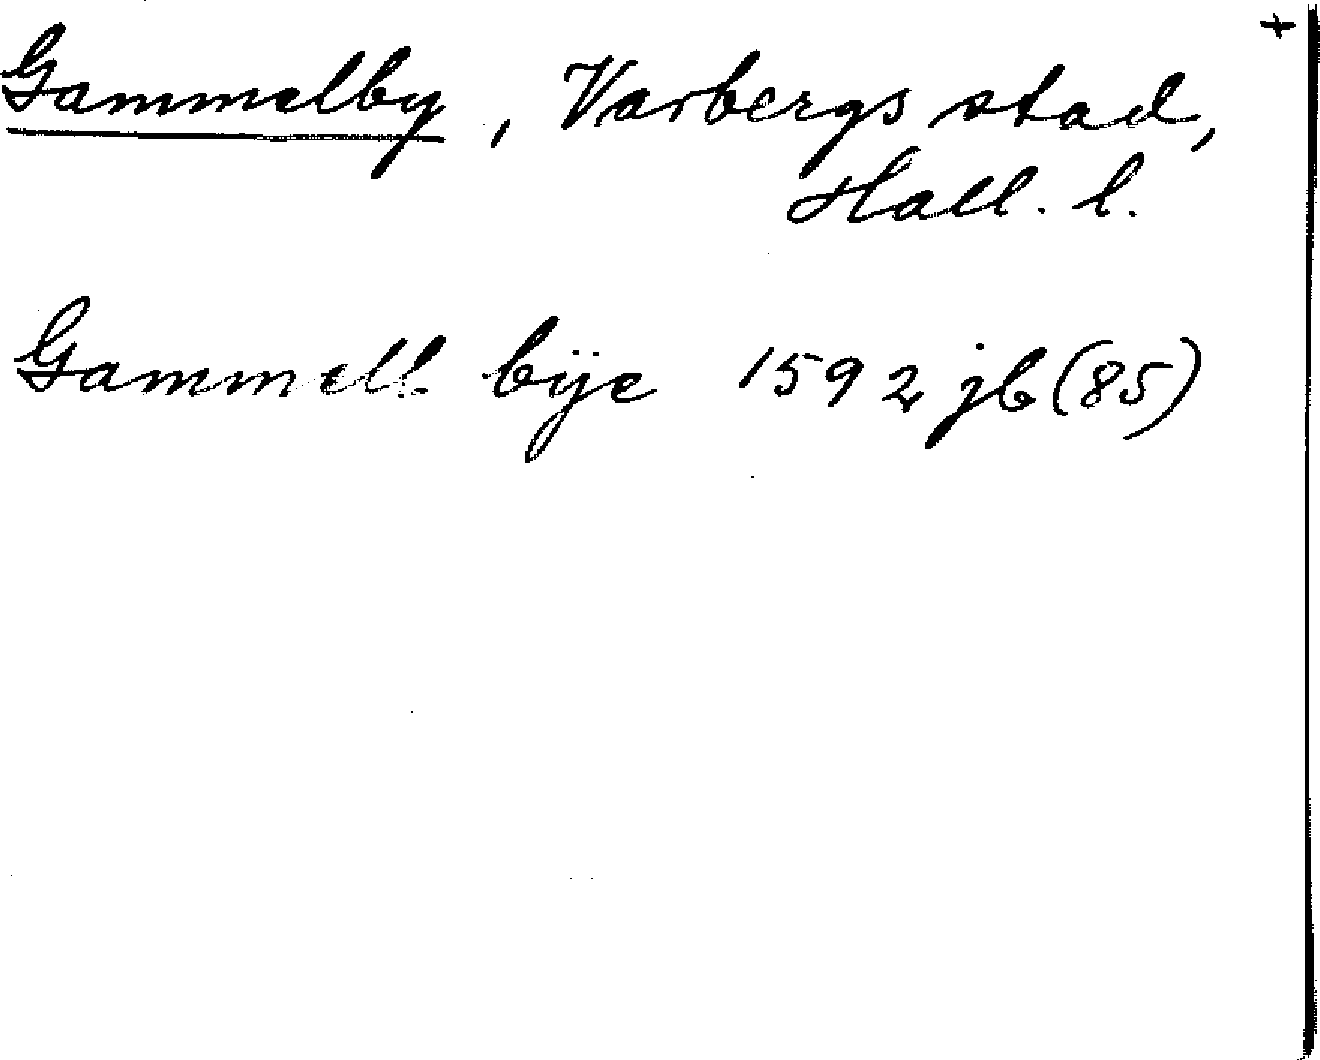 +
Gammelby, Varbergs stad,
Hall. l.
Gammell bÿe 1592 jb (85)